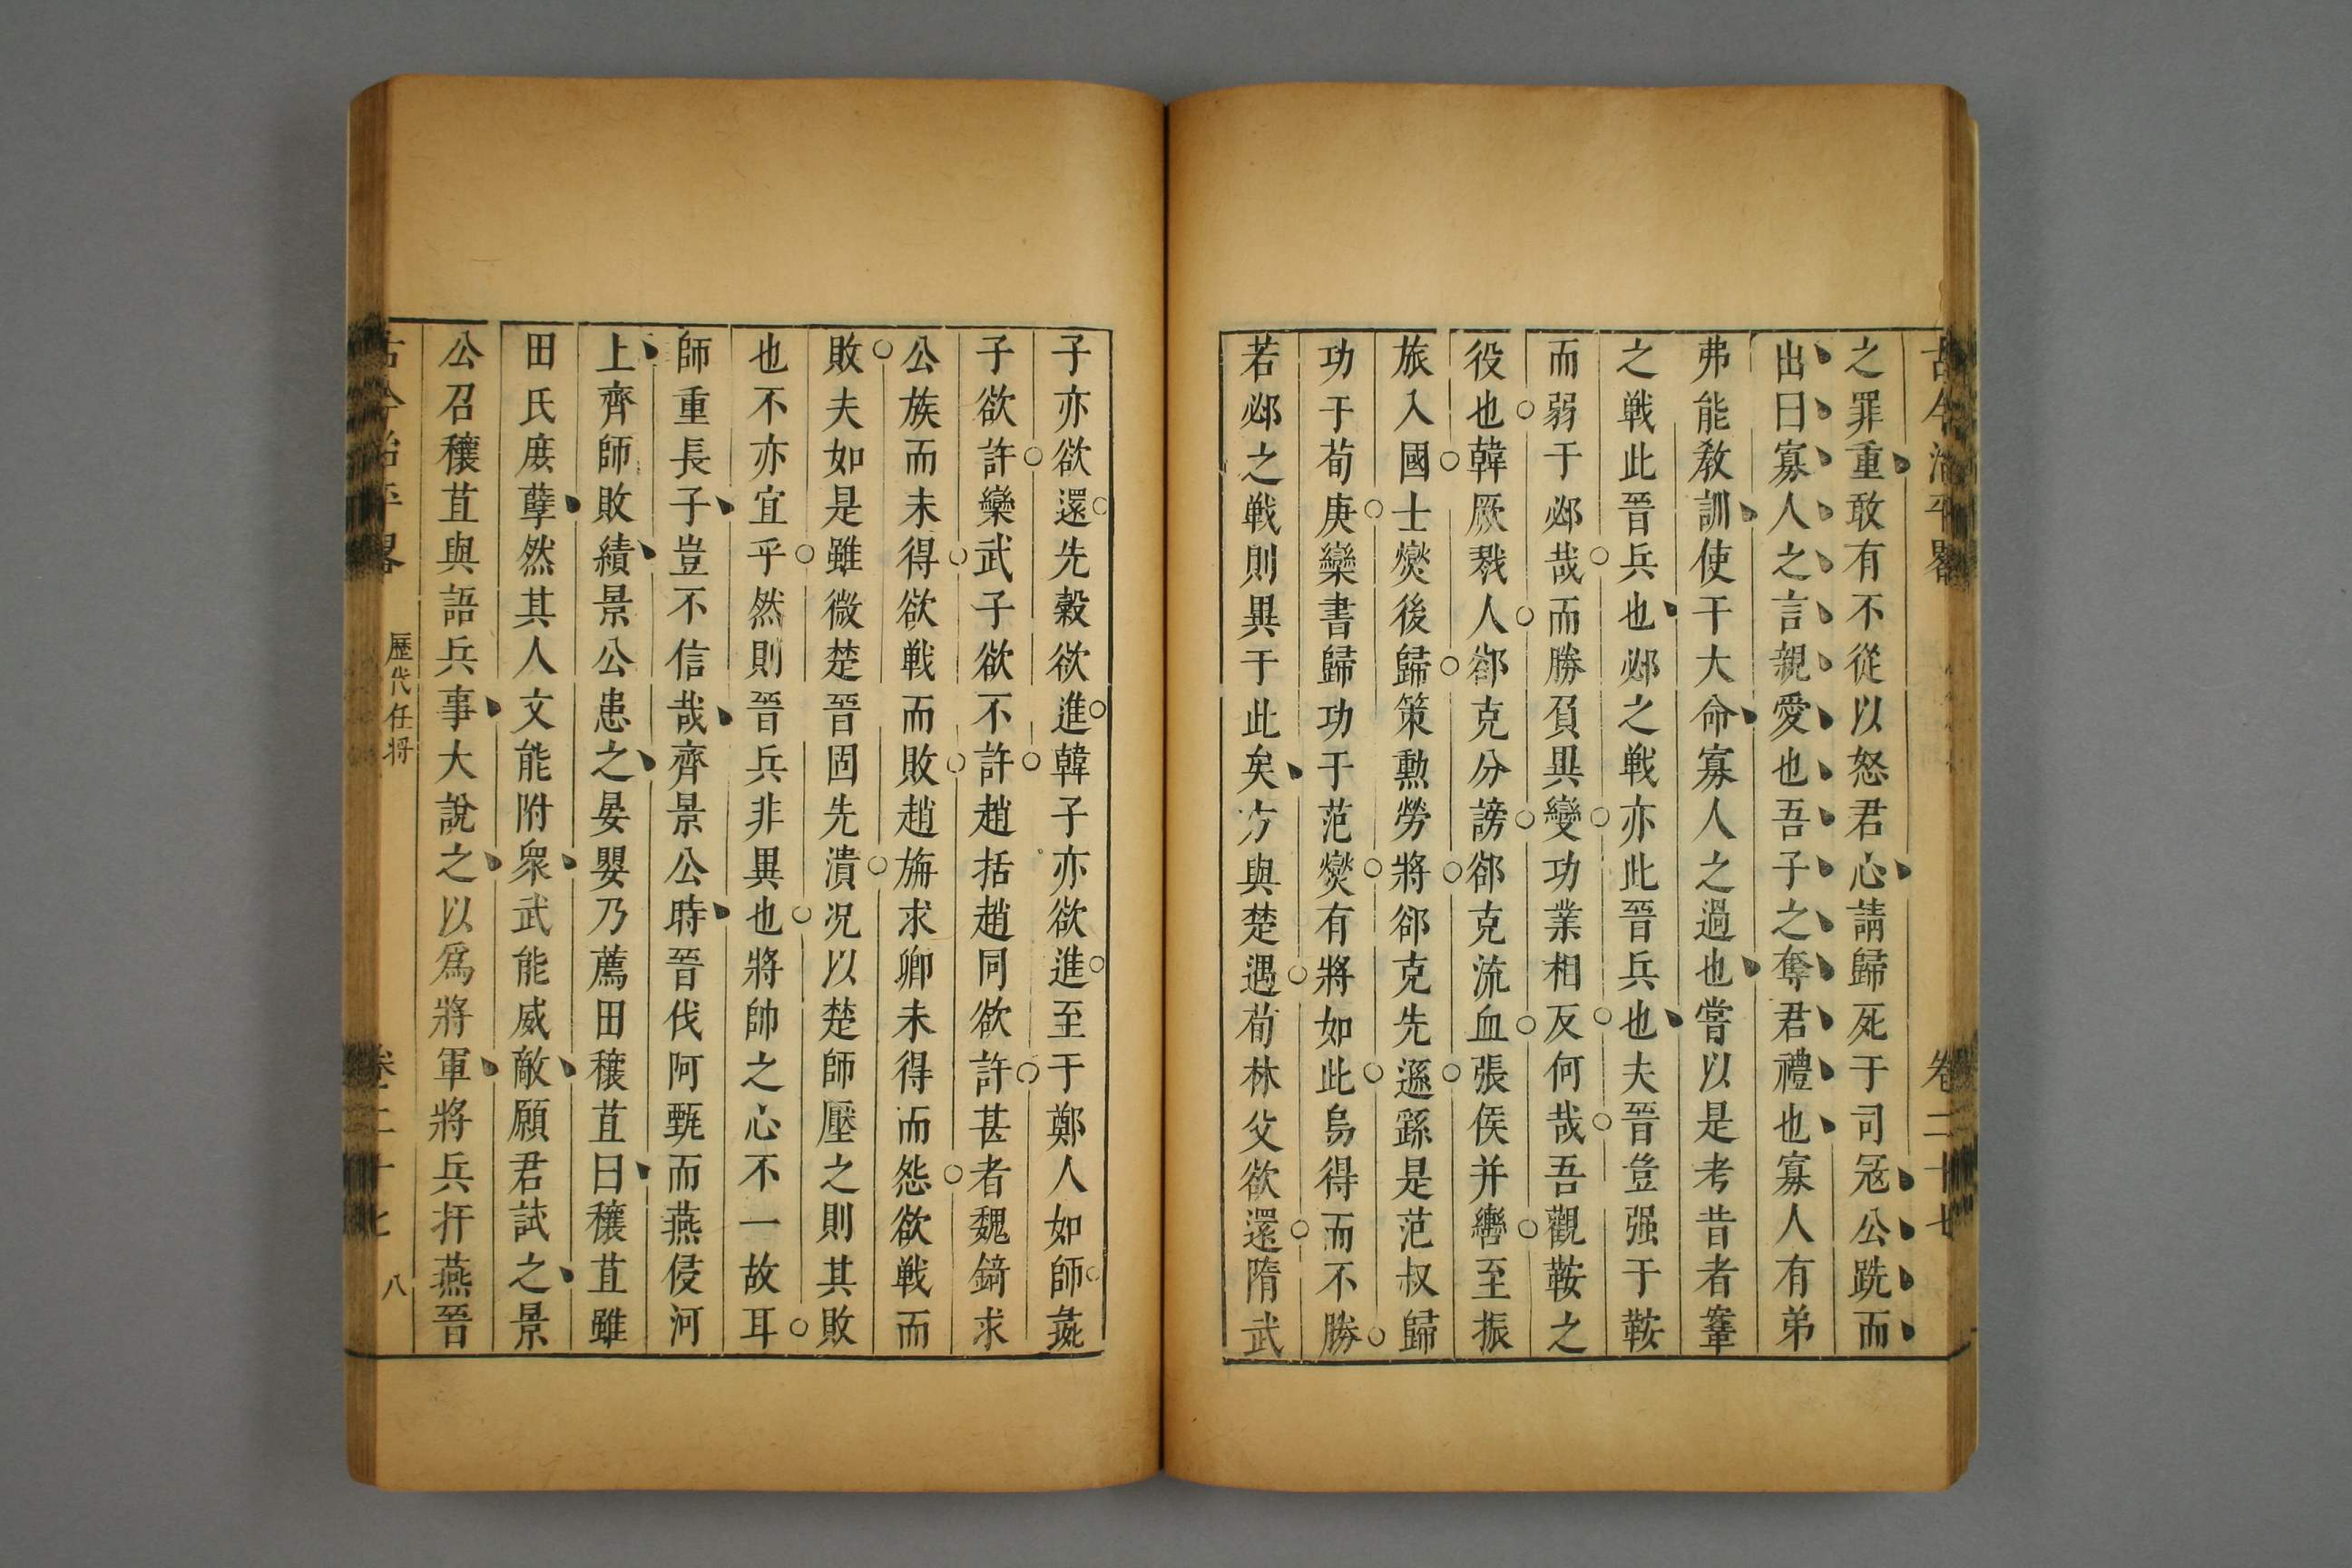 古今治平畧 卷二十七
之罪重敢有不從以怒君心請歸死于司冦公跣而
出曰寡人之言親愛也吾子之奪君禮也寡人有弟
弗能敎訓使干大命寡人之過也嘗以是考昔者鞌
之戰此晉兵也邲之戰亦此晉兵也夫晉豈强于鞍
而弱于邲哉而勝負異變功業相反何哉吾觀鞍之
役也韓厥戮人郤克分謗郤克流血張侯并轡至振
旅入國士燮後歸策勲勞將郤克先遜繇是范叔歸
功于荀庚欒書歸功于范燮有將如此烏得而不勝
若邲之戰則異于此矣方與楚遇荀林父欲還隋武
子亦欲還先縠欲進韓子亦欲進至于鄭人如師彘
子欲許欒武子欲不許趙括趙同欲許甚者魏錡求
公族而未得欲戰而敗趙旃求卿未得而怨欲戰而
敗夫如是雖微楚晉固先潰况以楚師壓之則其敗
也不亦宜乎然則晉兵非異也將帥之心不一故耳
師重長子豈不信哉齊景公時晉伐阿甄而燕侵河
上齊師敗績景公患之晏嬰乃薦田穰苴曰穰苴雖
田氏庻孽然其人文能附衆武能威敵願君試之景
公召穰苴與語兵事大說之以爲將軍將兵扞燕晉
古今治平畧 歷代任將 卷二十七 八